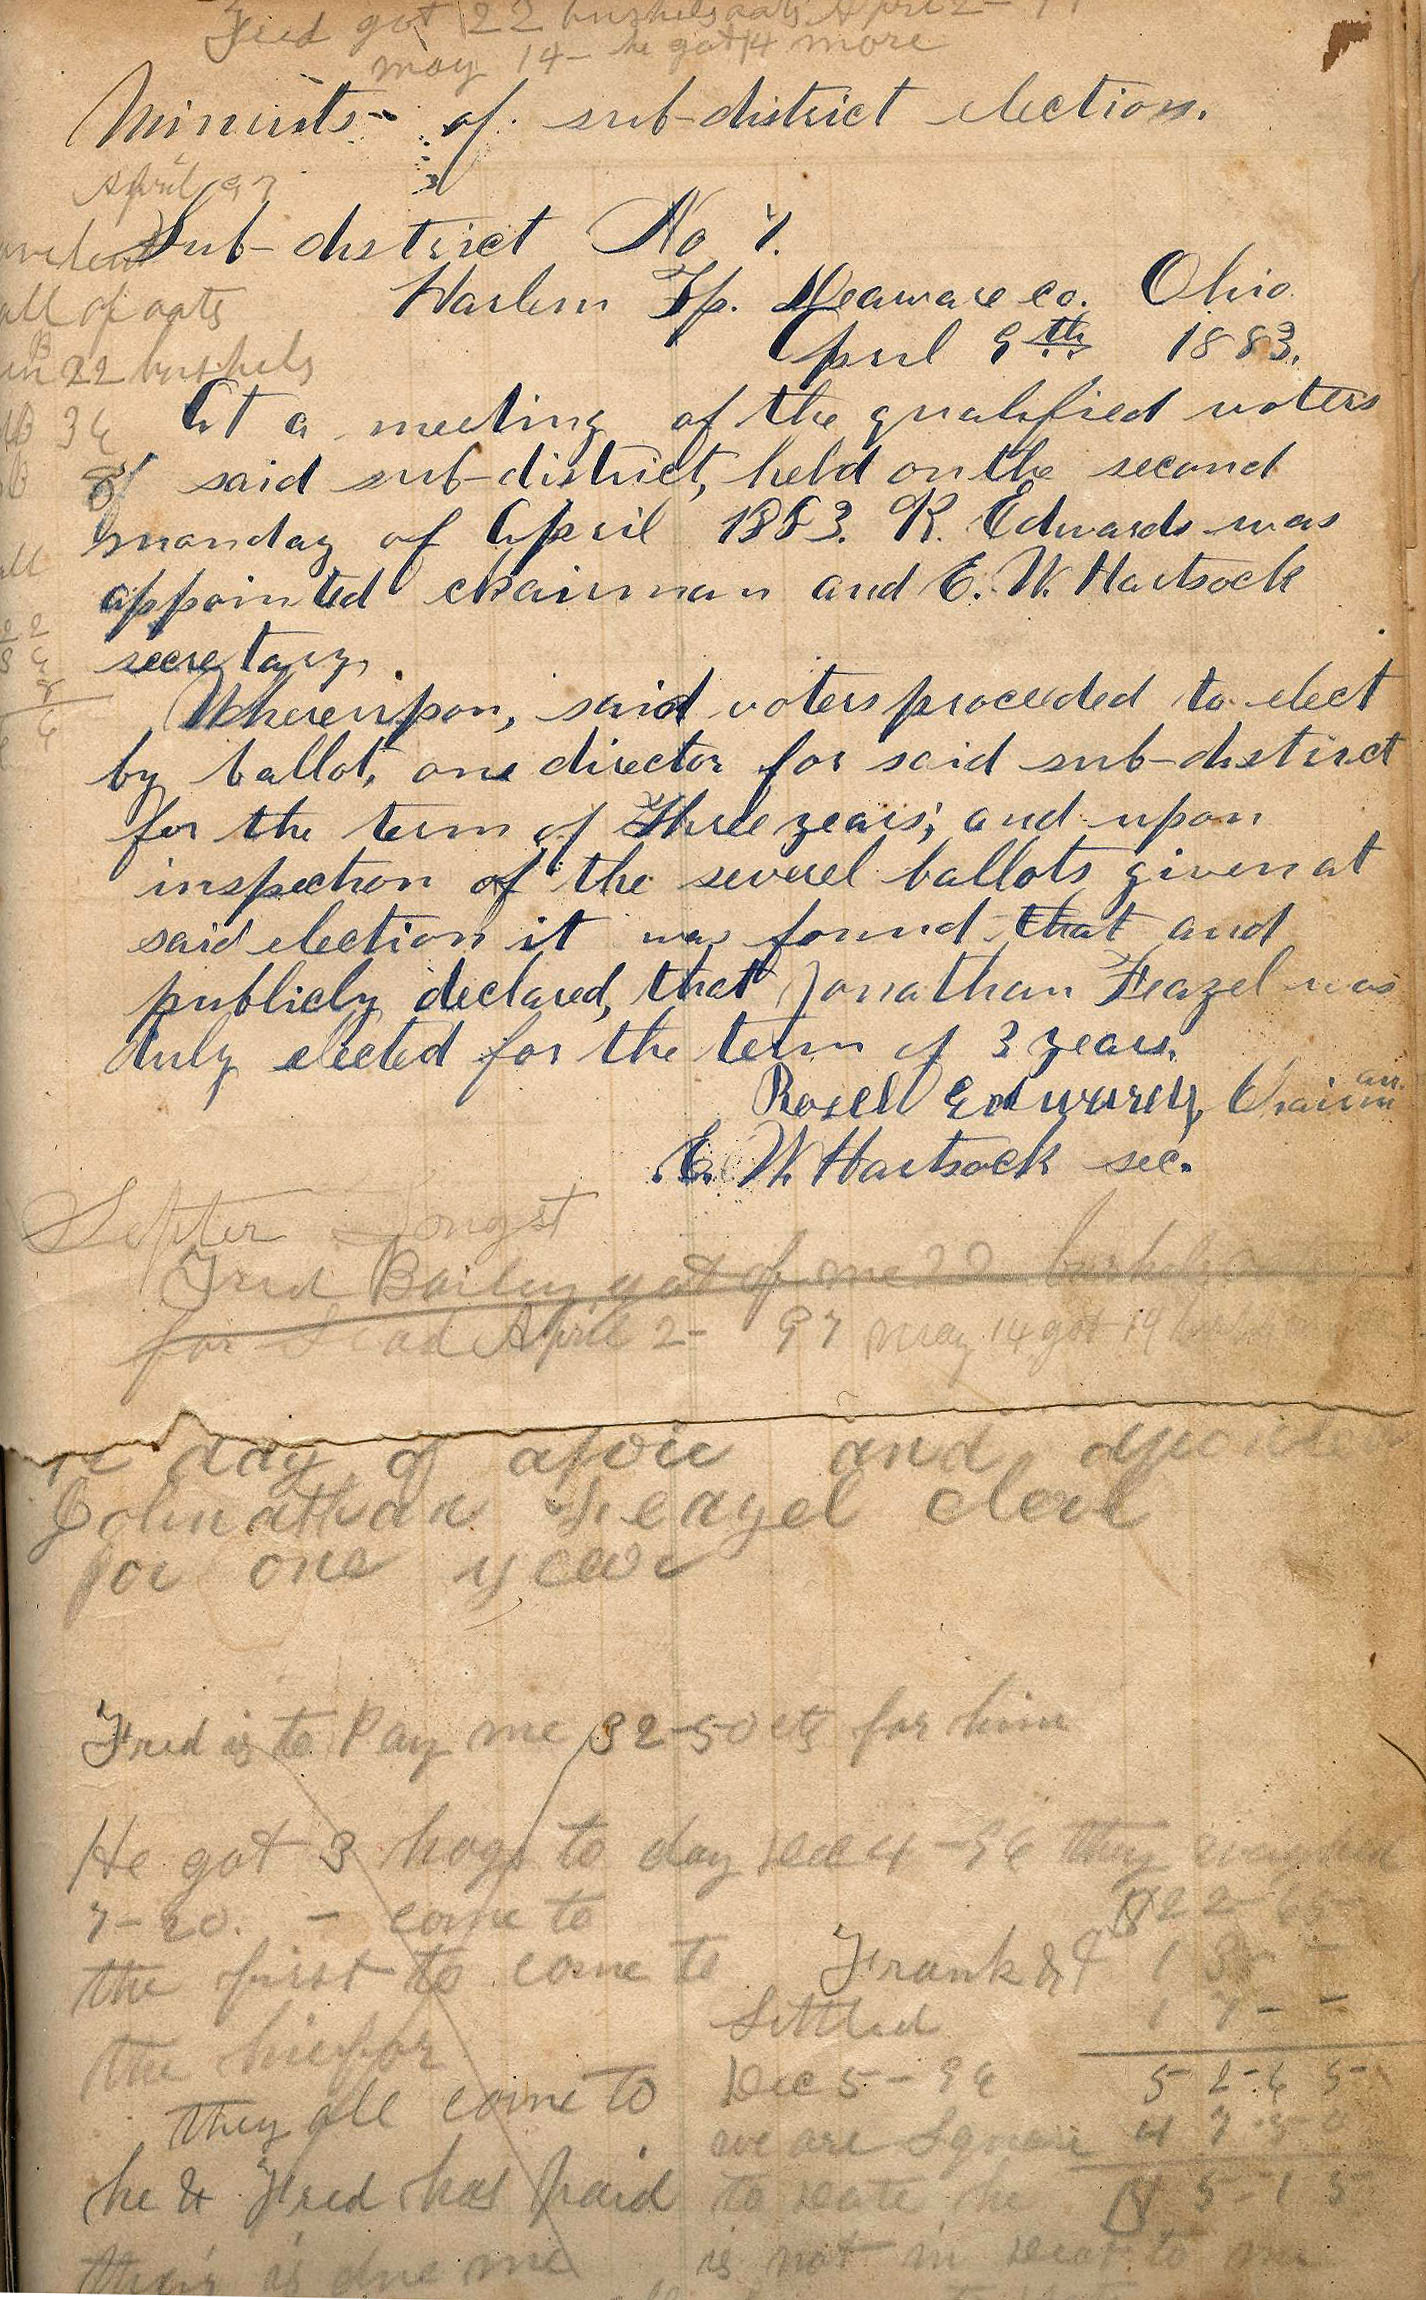 Fred got 22 bushels oats April 2-97
may 14- he got 14 more
Minuits of sub-district election.
April 97
Sub-district No 7.
all of oats
Harlem Tp. Deaware co. Ohio.
April 9th 1883.
22 bushels
At a meeting of the qualified voters
34
of said sub-district, held on the second
monday of April 1883. R. Edwards was
all
appointed chairman and E. W. Hartsock
22
secretary.
Whereupon, said voters proceeded to elect
by ballot, one director for said sub-district
for the term of Three years; and upon
inspection of the severel ballots given at
said election it was found that and
publicly declared, that Jonathan Feazel was
duly elected for the term of 3 years.
Rosell Edwards, Chairman
E. W. Hartsock sec.
Fred Bailey got of me 22 bushels
for Sead April 2- 97 may 14 got 14
day of apoie and
Johnathan Feazel clerk
for one year
Fred is to Pay me 32-50 cts for him
He got 3 hogs to day Dec 4-96 they weighed
7-20. - come to
$22-65
the first to come to
Frank &
1 3 - -
Settled
1 7 - -
the
Dec 5-96
5 2-6 5
they all come to
we are Square
4 7-5 0
he & Fred has paid
to date he
$ 5-1 5
their is due me
is not in to me